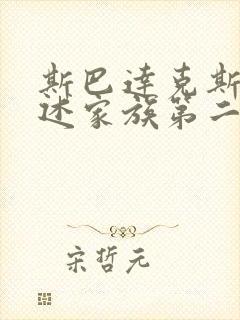 斯巴达克斯
述家族第二
宋哲元